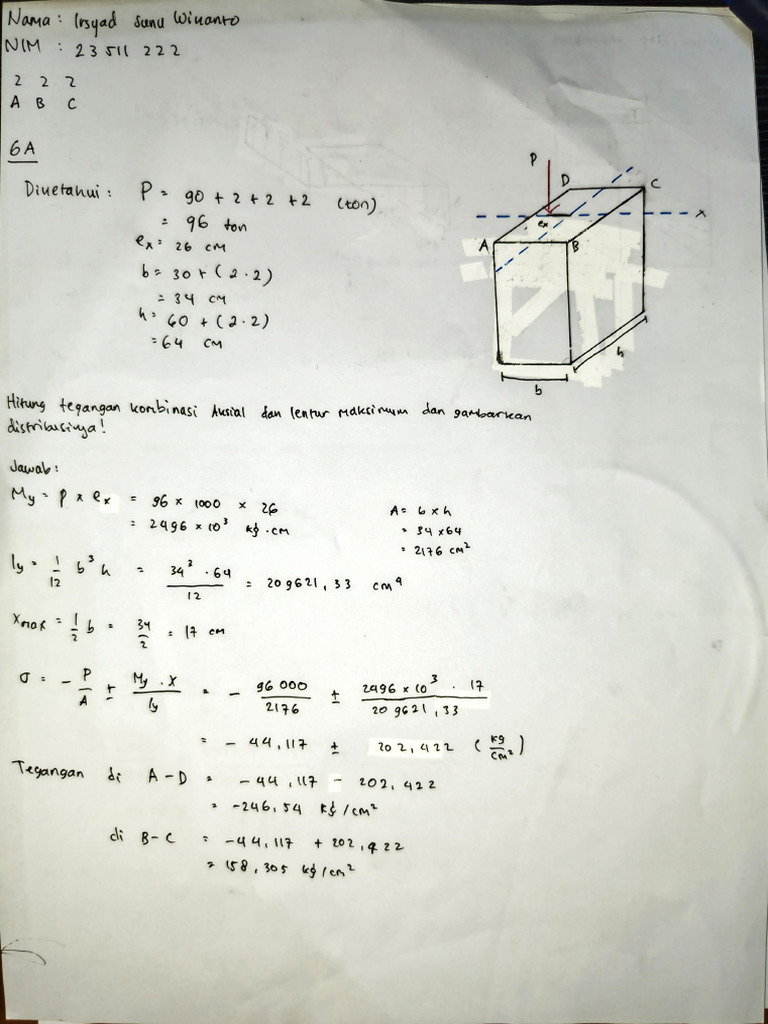 Nama : Irsyad Sunu Winanto
NIM : 23 511 222
2 2 2
A B C
6A
Diketahui : P = 90 + 2 + 2 + 2 (ton)
= 96 ton
ex = 26 cm
b = 30 + (2 . 2)
= 34 cm
h = 60 + (2 . 2)
= 64 cm
P
D
C
x
ex
A
B
h
b
Hitung tegangan kombinasi Aksial dan lentur maksimum dan gambarkan
distribusinya!
Jawab :
My = P x ex = 96 x 1000 x 26
= 2496 x 10³ kg . cm
A = b x h
= 34 x 64
= 2176 cm²
Iy = 1/12 b³ h = 34³ . 64 / 12 = 209621,33 cm⁴
xmax = 1/2 b = 34/2 = 17 cm
σ = - P/A ± My . x / Iy = - 96 000 / 2176 ± 2496 x 10³ . 17 / 209621,33
= - 44,117 ± 202,422 (kg/cm²)
Tegangan di A-D = -44,117 - 202,422
= -246,54 kg/cm²
di B-C = -44,117 + 202,422
= 158,305 kg/cm²